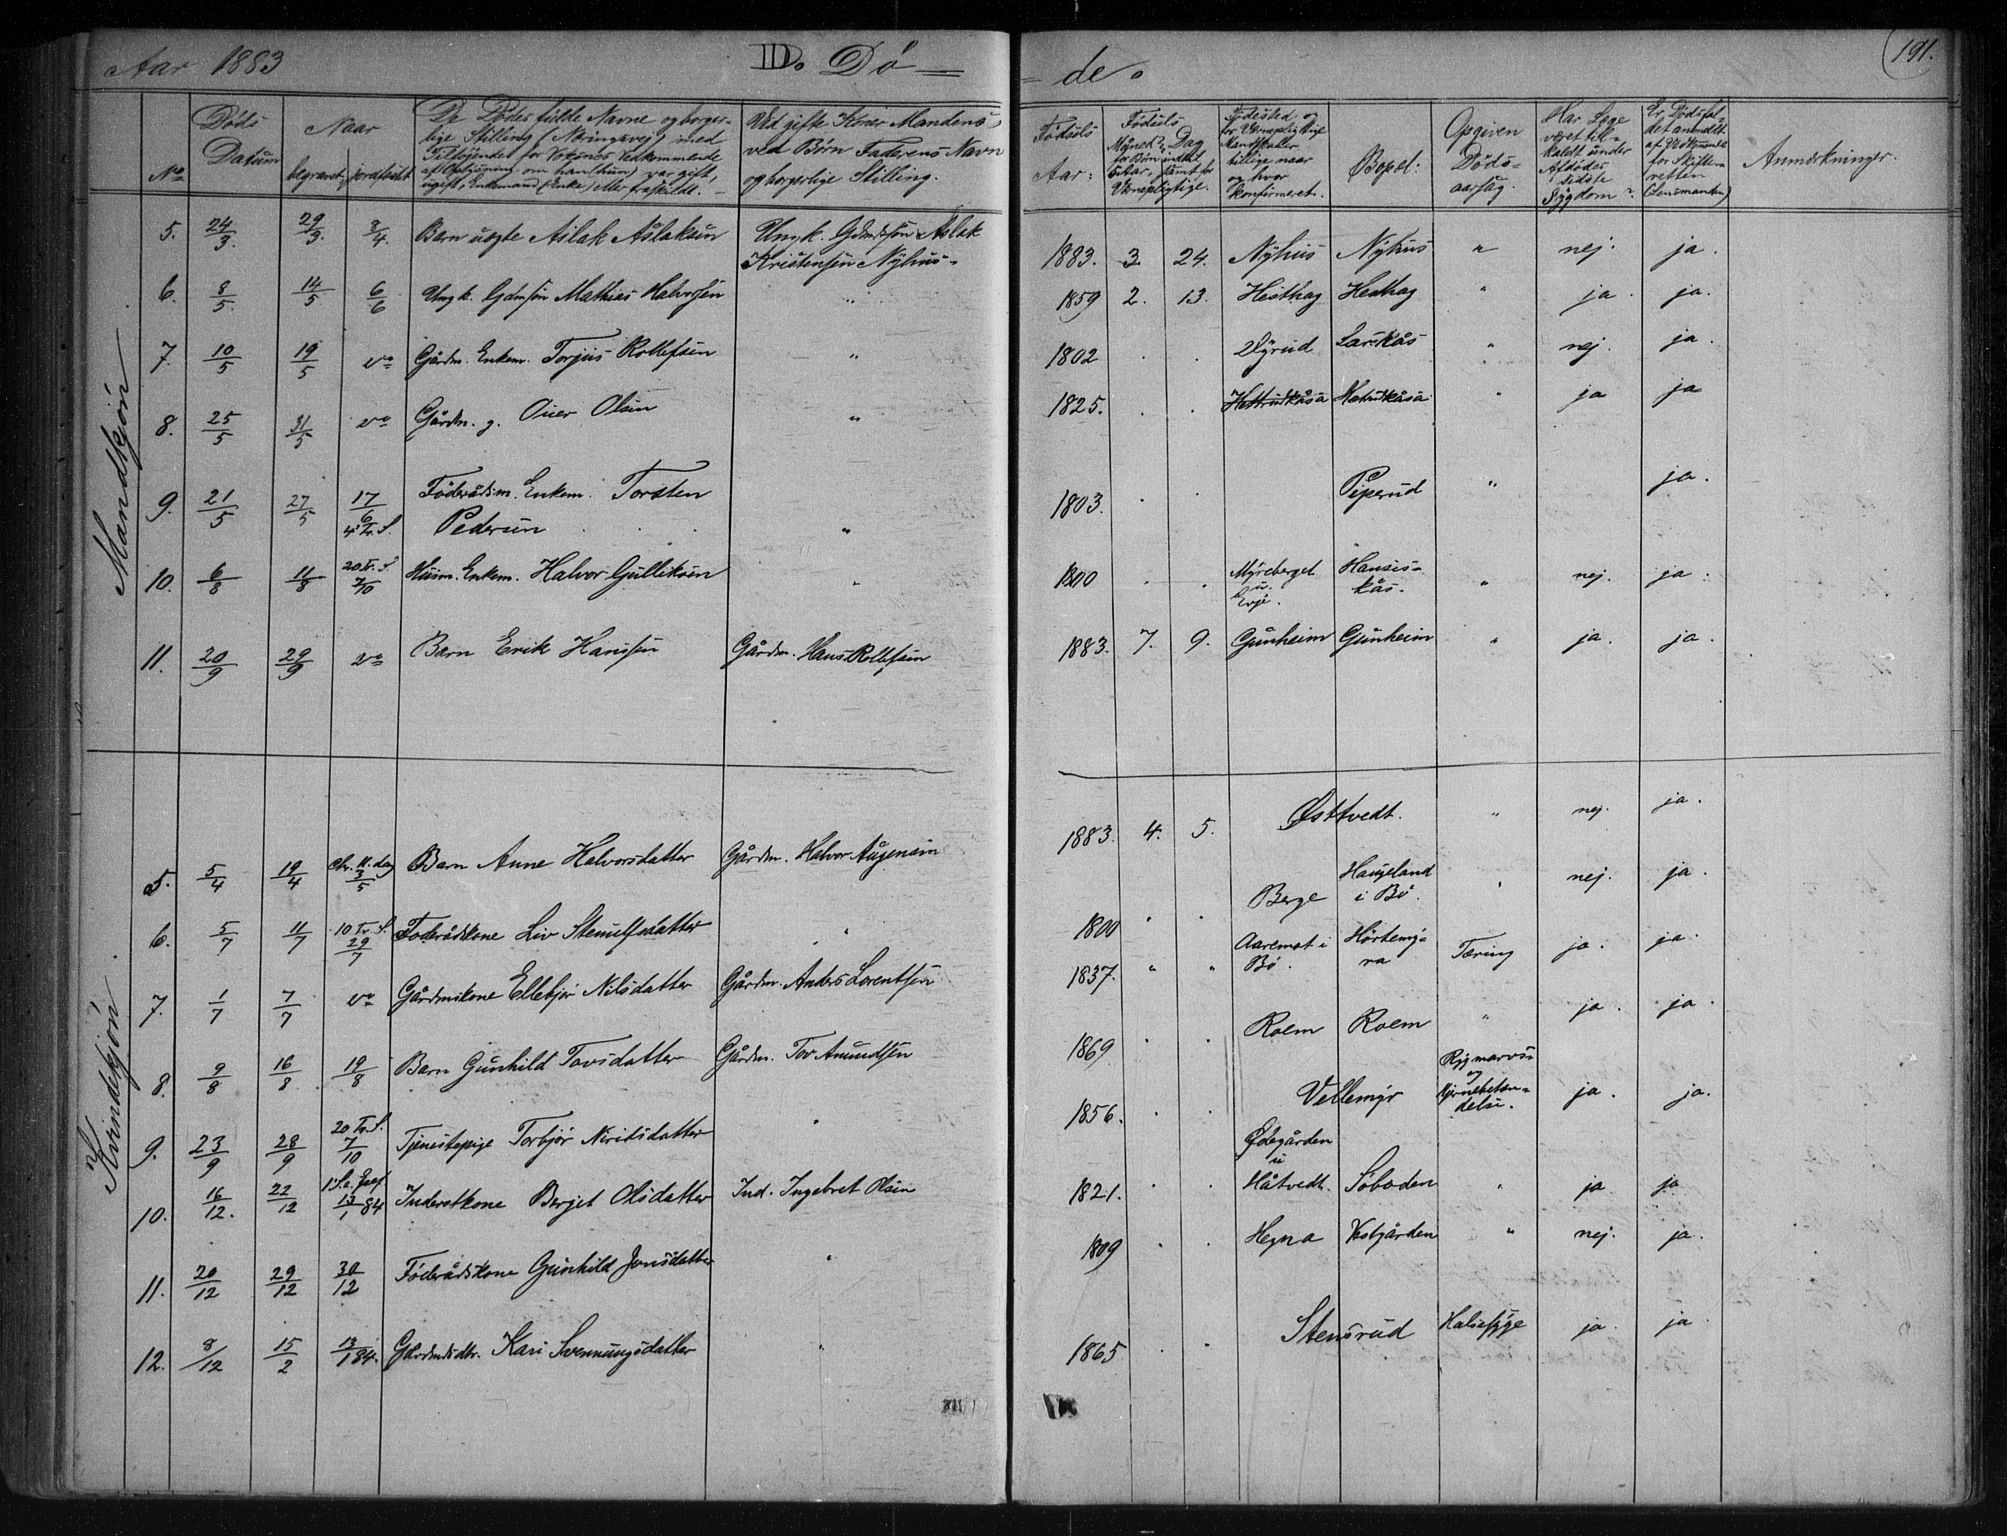 Aar 1883
D. Dø – – de.
191.
No.
Døds Datum
Naar
begravet
jordfæstet
De Dødes fulde Navne og borger-
lige Stilling (Næringsvej) med
Tilføjende for Voksnes Vedkommende
af Oplysning om han (hun) var gift,
ugift, Enkemand (Enke) eller fraskilt. –
Ved gifte Koner Mandens,
ved Børn Faderens Navn
og borgerlige Stilling.
Fødsels Aar:
Fødsels
Måned & Dag
for Børn indtil
5 Aar, samt for
Værnepligtige.
Fødested og
for Værnepligtige
Mandskaber
tillige naar
og hvor
konfirmeret.
Bopæl:
Opgiven
Døds-
aarsag.
Har Læge
været til-
kaldt under
Afdødes
sidste
Sygdom?
Er Dødsfal-
det anmeldt
af Vedkommende
for Skifte-
retten
(Lensmanden)
Anmærkninger.
Mandkjøn
5. 24/3. 29/3. 3/4. Barn uægte Aslak Aslaksen Ungk. Gdmdsøn Aslak
Kristensen Nyhus. 1883. 3. 24. Nyhus Nyhus " nej. ja.
6. 8/5. 14/5 6/6 Ungk. Gdmsøn Mathias Halvorsen " 1859 2. 13. Hesthag Hesthag " ja. ja.
7. 10/5 19/5 do Gårdm. Enkem. Torjus Rollefsen " 1802 . . Dyrud Larskås " nej. ja.
8. 25/5 31/5 do Gårdm. g. Oner Olsen " 1825. . . Hettrudkåsa Hetrudkåsa " ja ja
9. 21/5 27/5 17/6 4 Tr. S. Føderådsm. Enkem. Torsten
Pedersen " 1803. . . Piperud " ja.
10. 6/8 11/8 20 Tr. S. 7/10 Husm. Enkem. Halvor Gulliksen " 1800 . . Myreberget
u.
Evje. Hansis-
kås. " nej. ja.
11. 20/9 29/9 do Barn Erik Hansen Gårdm. Hans Rollefsen 1883. 7. 9. Gunheim Gunheim " ja. ja.
Kvindekjøn
5. 5/4 19/4 Chr. H. dag 3/5 Barn Anne Halvorsdatter Gårdm. Halvor Augensen 1883. 4. 5. Østtvedt. " nej. ja.
6. 5/7 11/7 10 Tr. S. 29/7 Føderådskone Liv Stenulfsdatter " 1800 . . Berge Haugeland
i Bø. " nej. ja.
7. 1/7 7/7 do Gårdmskone Ellebjør Nilsdatter Gårdm. Anders Lorentsen 1837. " " Aaremot i
Bø. Hørtemy-
ra Tæring ja. ja.
8. 9/8 16/8. 19/8 Barn Gunhild Tovsdatter Gårdm. Tov Amundsen 1869 . . Roem Roem " ja. ja.
9. 23/9 28/9 20 Tr. S. 7/10 Tjenestepige Torbjør Neridsdatter " 1856. . . Vellemyr Rygmarvs-
og
Hjernebetæn-
delse. ja. ja.
10. 16/12. 22/12 1 S. e. Epef. 13/1 84 Inderstkone Berget Olsdatter Ind. Ingebret Olsen 1821. . . Ødegården
u
Håtvedt. Søboden " ja ja
11. 20/12 29/12 30/12 Føderådskone Gunhild Jonsdatter " 1809 . . Hegna Vestgården " nej. ja.
12. 8/12 15/2 13/1 84. Gårdmdsdtr. Kari Svennungsdatter " 1865 . . Stensrud Halssyge ja. ja.